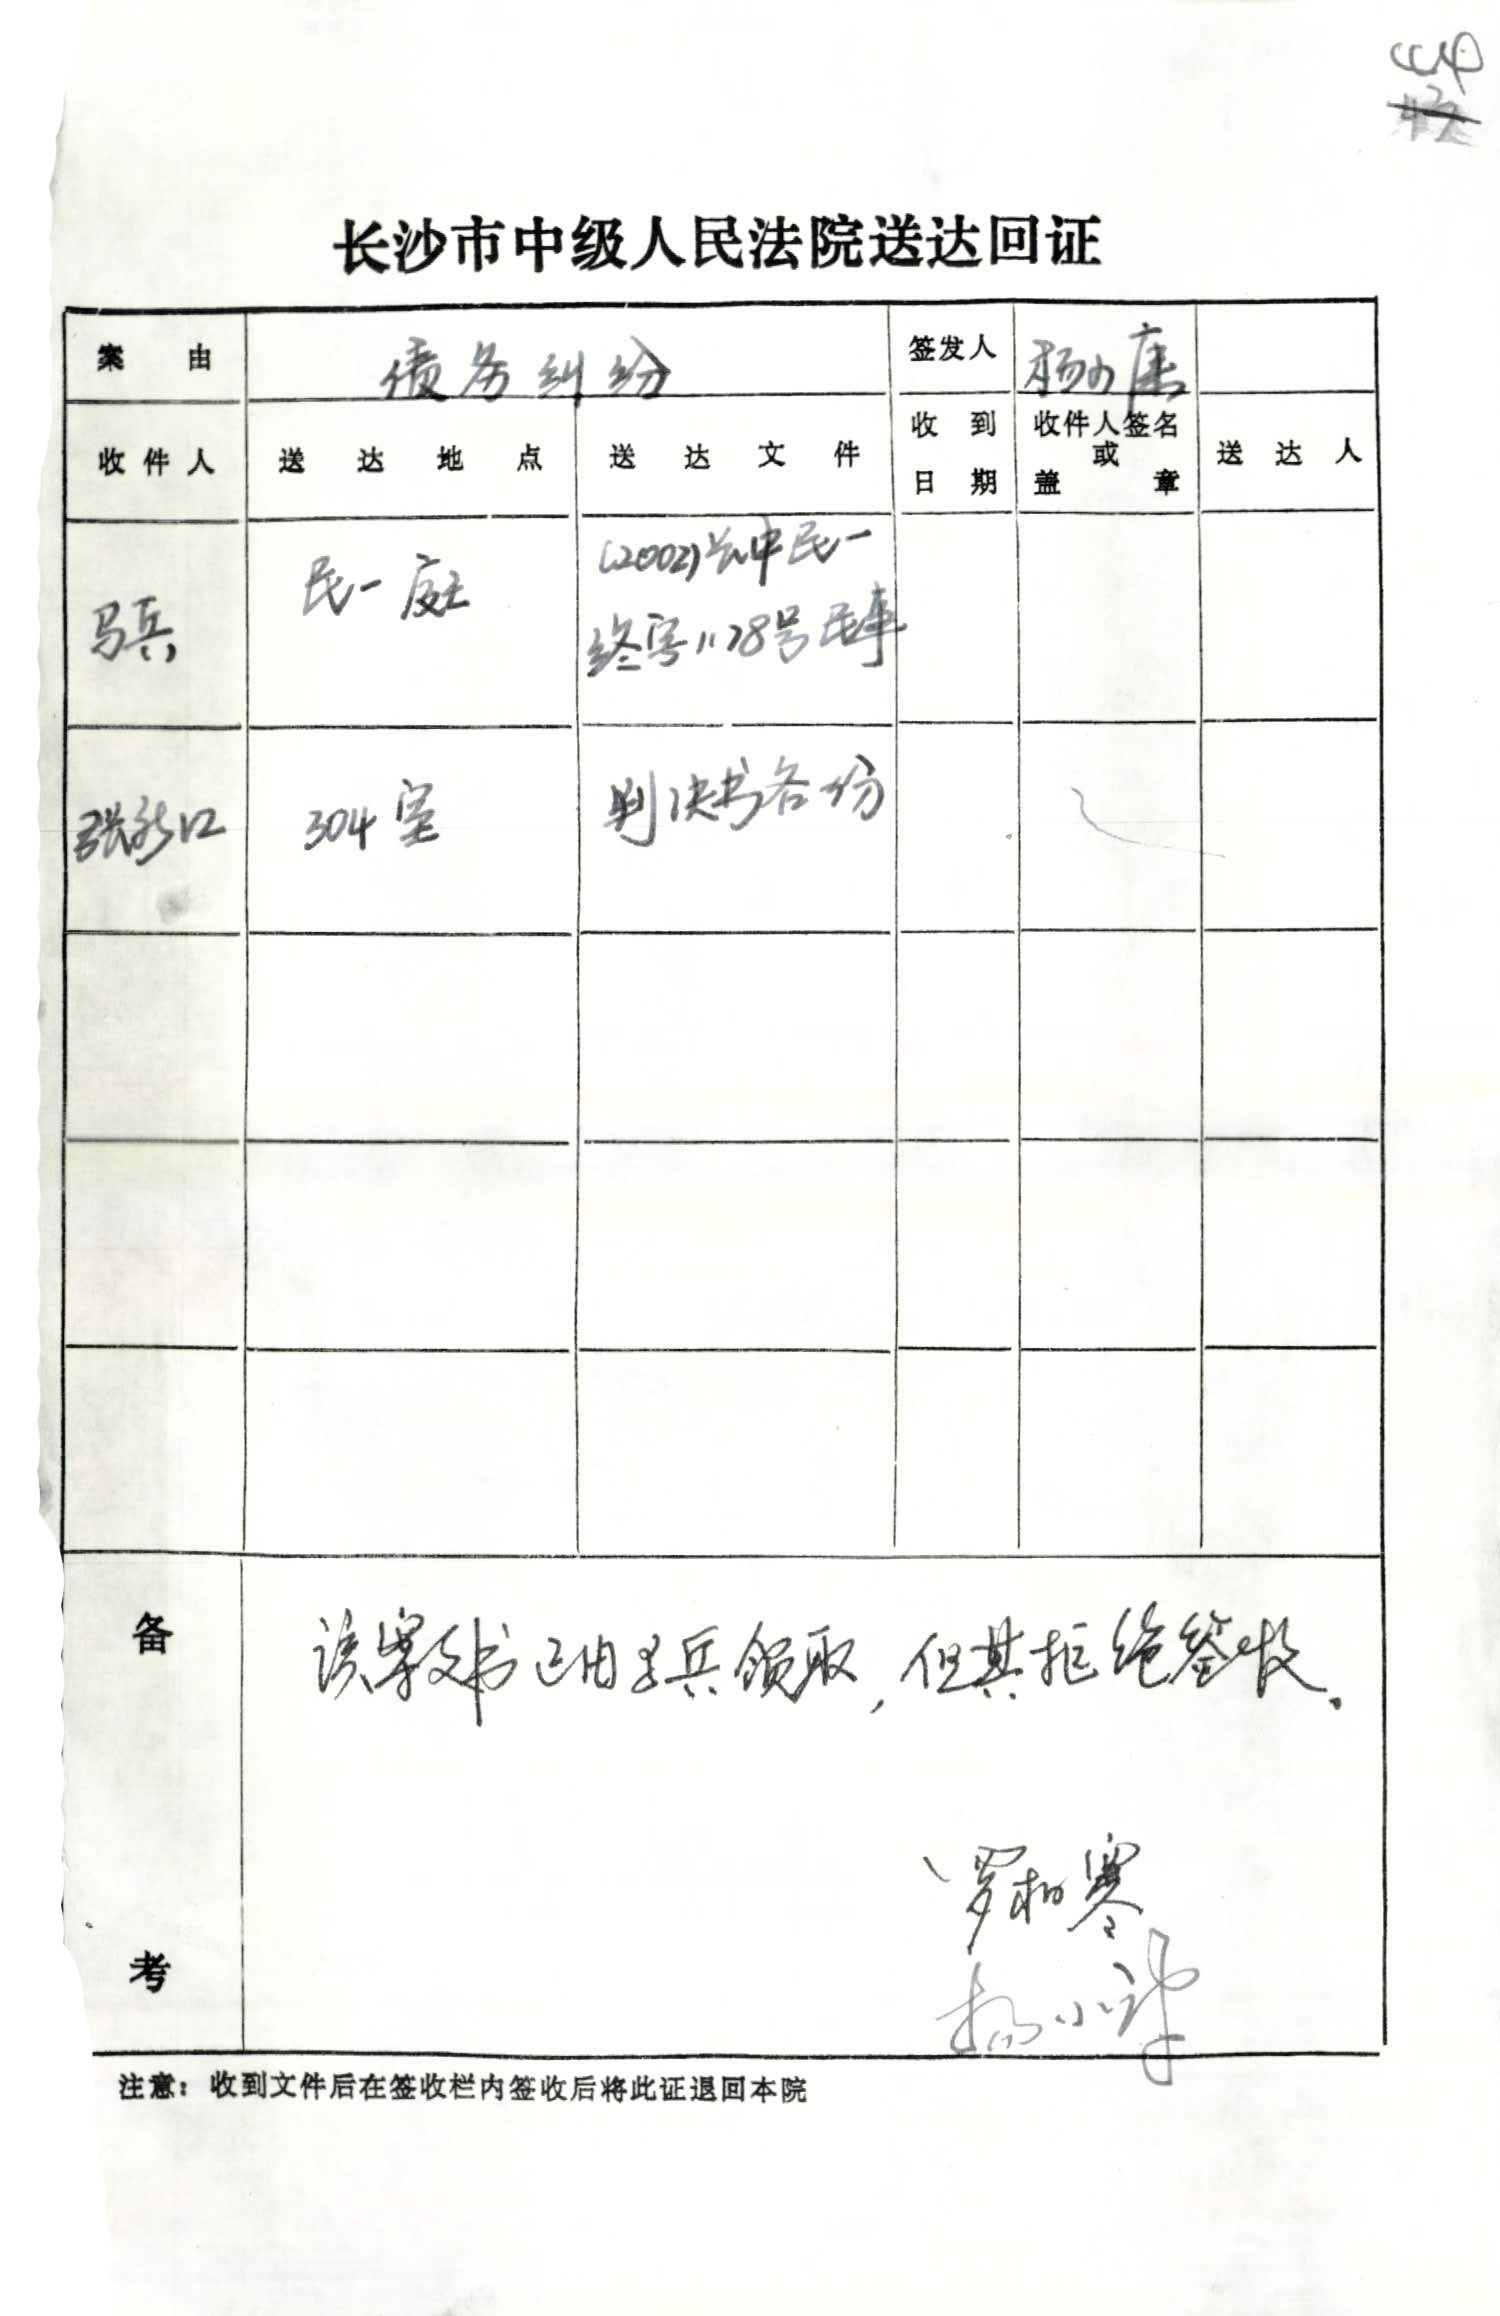 长沙市中级人民法院送达回证
案由 债务纠纷 签发人
收件人 送达地点 送达文件 收到日期 收件人签名或盖章 送达人
马兵 民一庭 (2002)长中民一
终字1178号民事
304室 判决书各一份
备考
该案文书已由马兵领取,但其拒绝签收。
注意:收到文件后在签收栏内签收后将此证退回本院